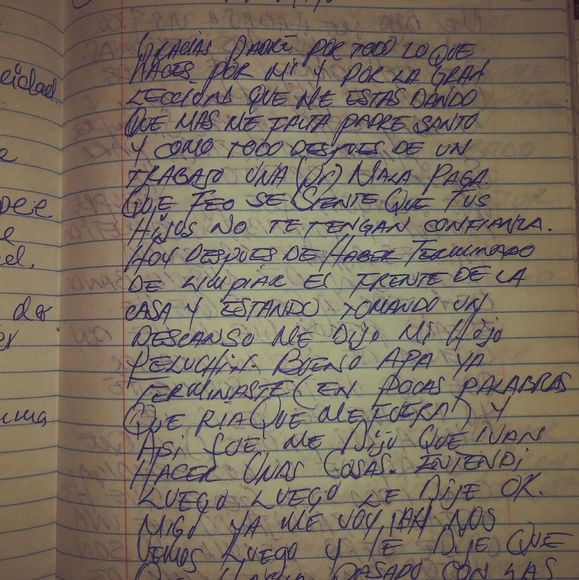 GRACIAS PADRE POR TODO LO QUE
HACES POR MI Y POR LA GRAN
LECCIONS QUE ME ESTAS DANDO
QUE MAS ME FALTA PADRE SANTO
Y COMO TODO DESPUES DE UN
TRABAJO UNA MALA PAGA
QUE FEO SE SIENTE QUE TUS
HIJOS NO TE TENGAN CONFIANZA.
HOY DESPUES DE HABER TERMINADO
DE LIMPIAR EL FRENTE DE LA
CASA Y ESTANDO TOMANDO UN
DESCANSO ME DIJO MI HIJO
PELUCHIN. BUENO APA YA
TERMINASTE (EN POCAS PALABRAS
QUERIA QUE ME FUERA) Y
ASI FUE ME DIJO QUE IVAN
HACER UNAS COSAS. ENTENDI
LUEGO LUEGO LE DIJE OK.
MIGO YA ME VOY NOS
VEMOS LUEGO Y LE DIJE QUE
PASADO CON LAS
cidad.
e
pee
e
d.
da